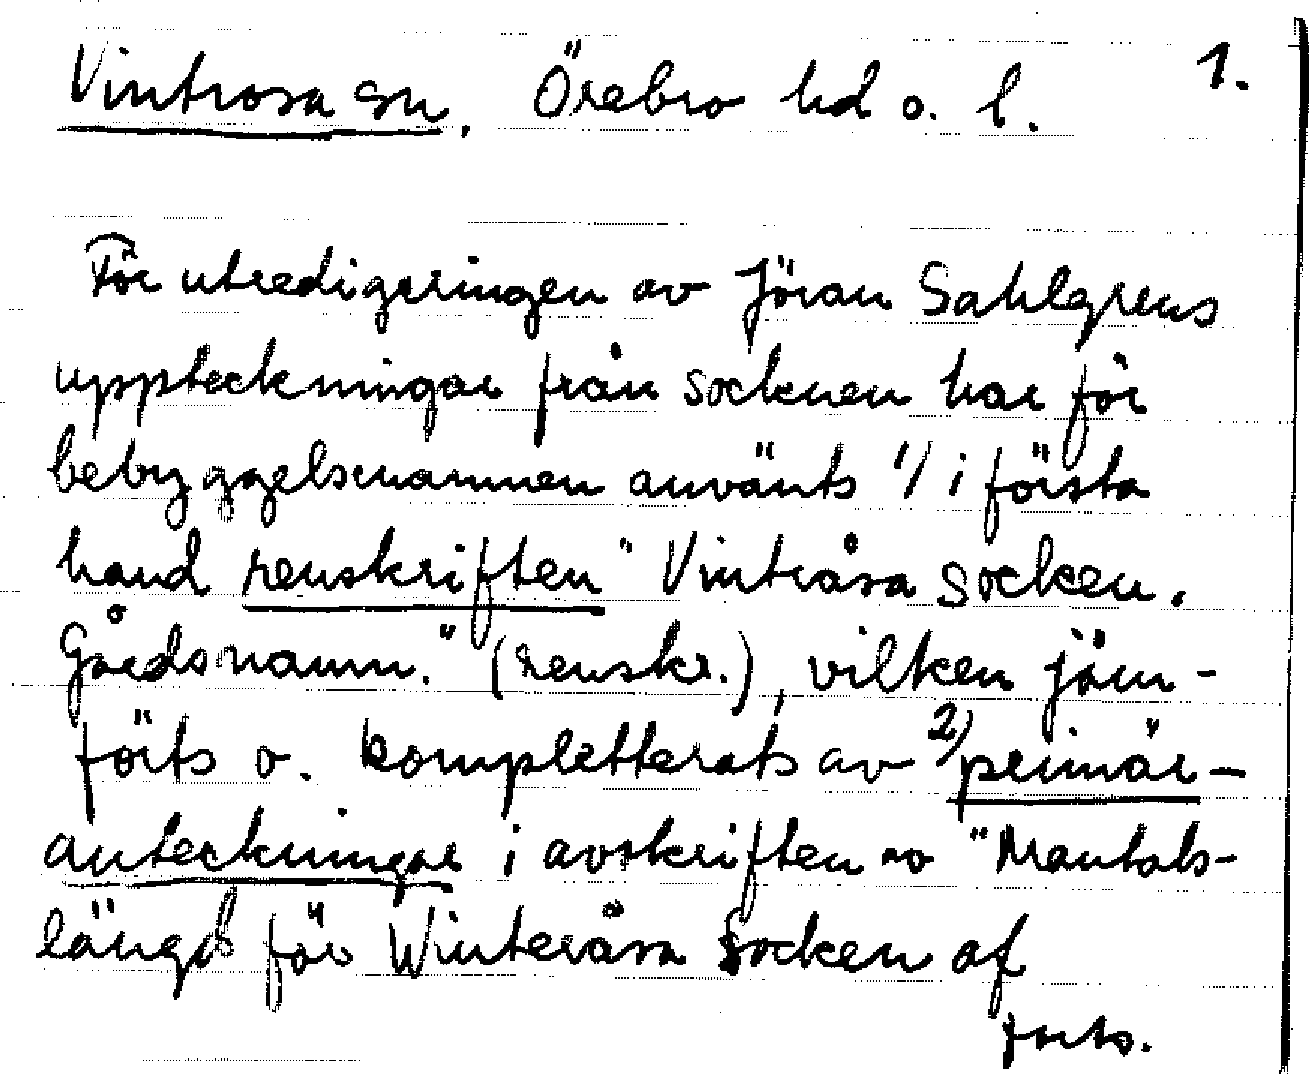 Vintrosa sn, Örebro hd o. l. 1.
För utredigeringen av Jöran Sahlgrens
uppteckningar från socknen har för
bebyggelsenamnen använts 1/ i första
hand renskriften "Vintråsa socken.
Gårdsnamn." (renskr.), vilken jäm-
förts o. kompletterats av 2) primär-
anteckningar i avskriften av "Mantals-
längd för Winteråsa Socken af
forts.